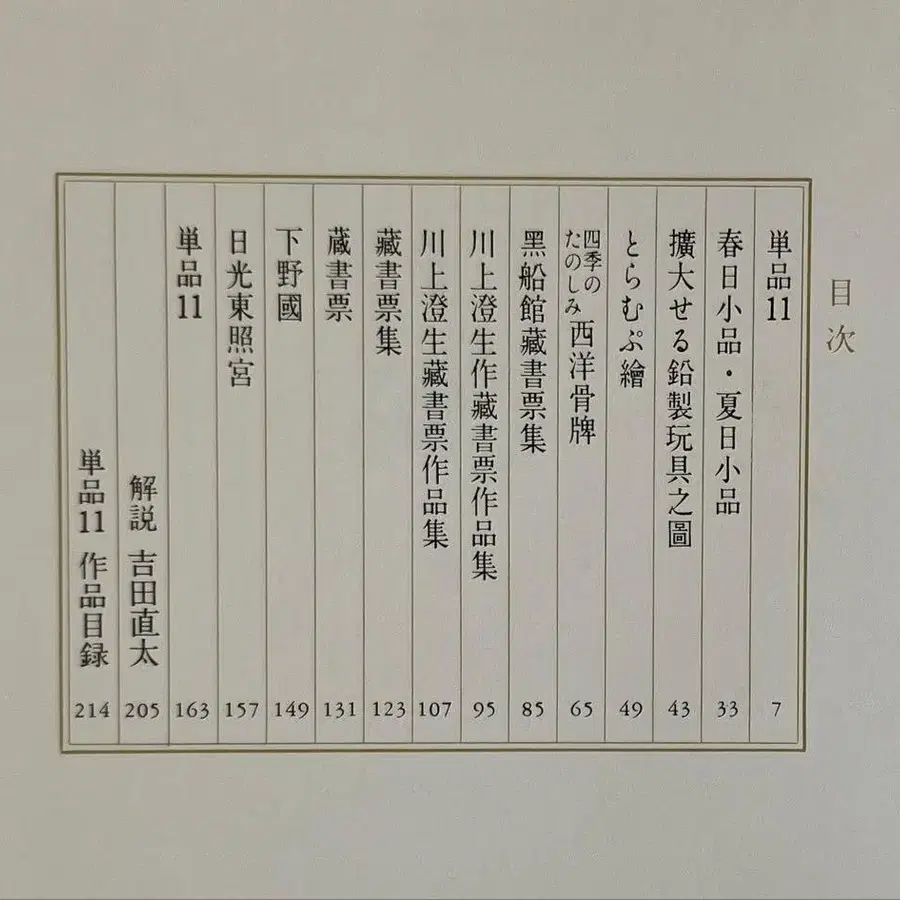 目次
単品11 7
春日小品・夏日小品 33
擴大せる鉛製玩具之圖 43
とらむぷ繪 49
四季のたのしみ 西洋骨牌 65
黑船館藏書票集 85
川上澄生作藏書票作品集 95
川上澄生藏書票作品集 107
藏書票集 123
蔵書票 131
下野國 149
日光東照宮 157
単品11 163
解説 吉田直太 205
単品11 作品目録 214